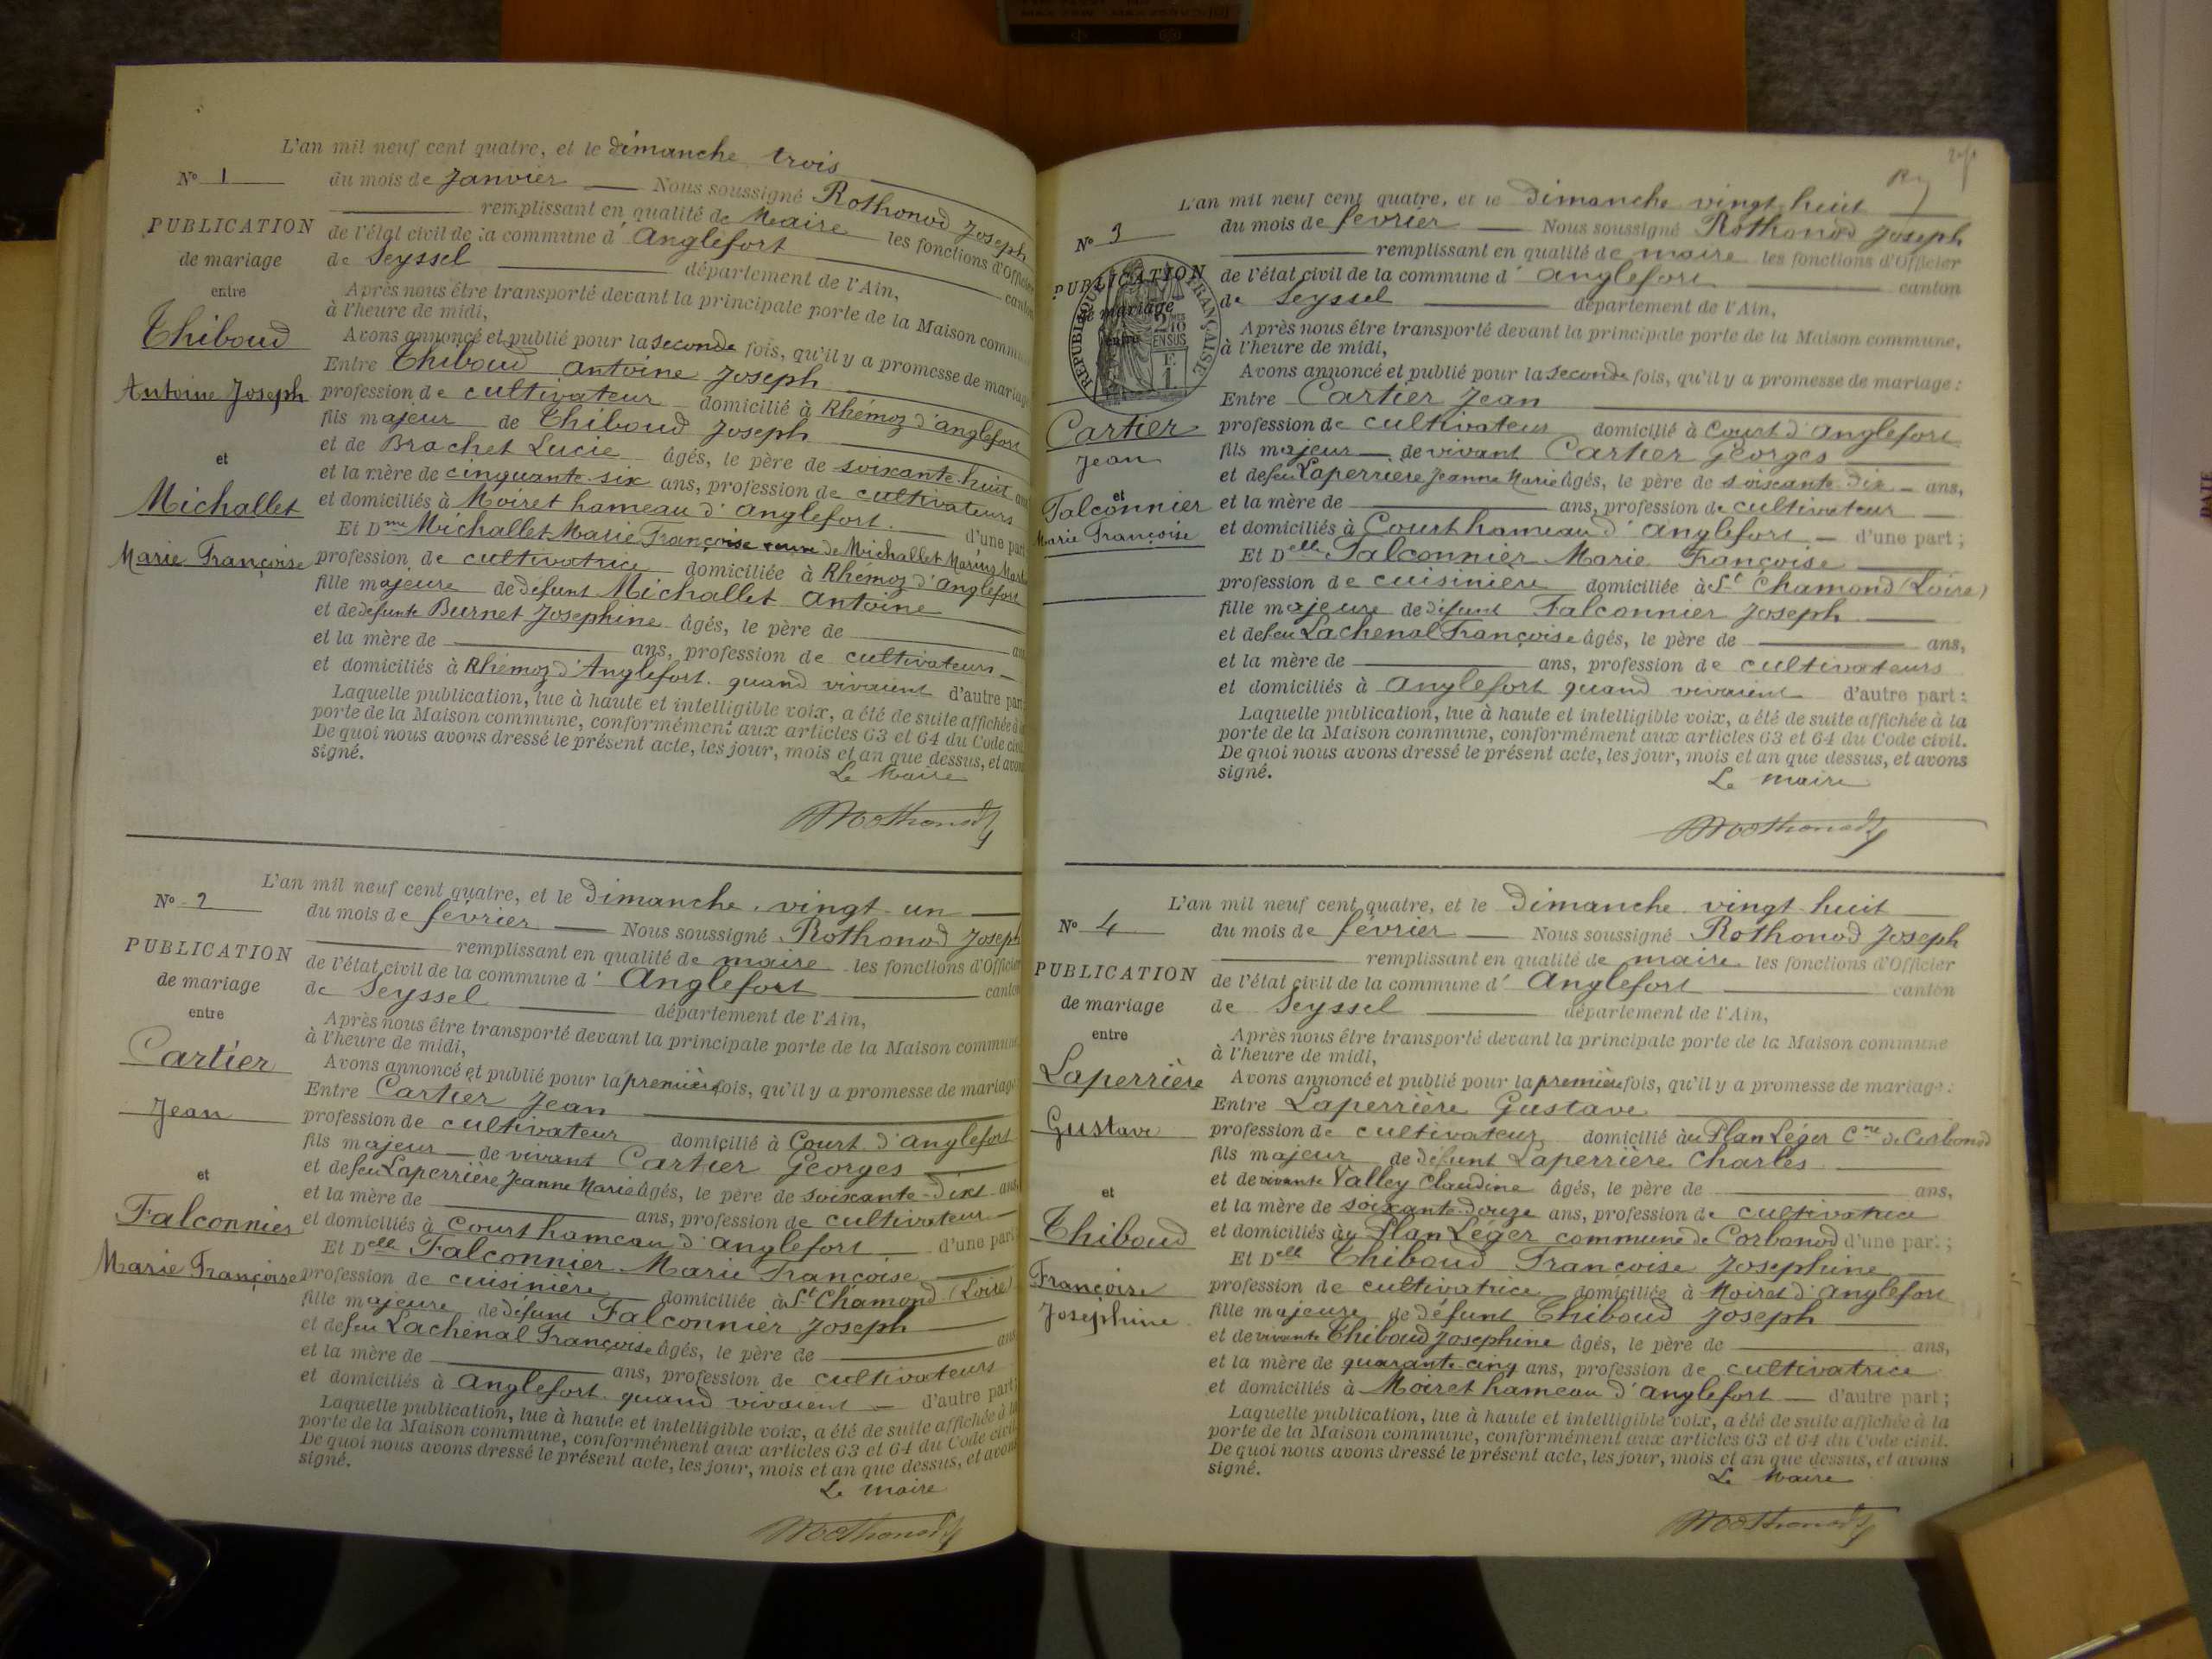 L'an mil neuf cent quatre, et le dimanche trois
N° 1
du mois de Janvier Nous soussigné Rothonod Joseph
remplissant en qualité de Maire les fonctions d'Officier
PUBLICATION
de l'état civil de la commune d' Anglefort canton
de mariage
de Seyssel département de l'Ain,
entre
Après nous être transporté devant la principale porte de la Maison commune
à l'heure de midi,
Thiboud
Avons annoncé et publié pour la seconde fois, qu'il y a promesse de mariage
Entre Thiboud Antoine Joseph
Antoine Joseph
profession de cultivateur domicilié à Rhémoz d'Anglefort
fils majeur de Thiboud Joseph
et de Brachet Lucie âgés, le père de soixante-huit ans
et
et la mère de cinquante-six ans, profession de cultivateurs
Michallet
et domiciliés à Moiret hameau d'Anglefort. d'une part
Et Dme Michallet Marie Françoise veuve de Michallet Marius
Marie Françoise
profession de cultivatrice domiciliée à Rhémoz d'Anglefort
fille majeure de défunt Michallet Antoine
et de défunte Burnet Josephine âgés, le père de ans
et la mère de ans, profession de cultivateurs
et domiciliés à Rhémoz d'Anglefort. quand vivaient d'autre part
Laquelle publication, lue à haute et intelligible voix, a été de suite affichée à la
porte de la Maison commune, conformément aux articles 63 et 64 du Code civil
De quoi nous avons dressé le présent acte, les jour, mois et an que dessus, et avons
signé.
Le Maire
Rothonod
L'an mil neuf cent quatre, et le Dimanche vingt-un
N° 2
du mois de février Nous soussigné Rothonod Joseph
remplissant en qualité de maire les fonctions d'Officier
PUBLICATION
de l'état civil de la commune d' Anglefort canton
de mariage
de Seyssel département de l'Ain,
entre
Après nous être transporté devant la principale porte de la Maison commune
à l'heure de midi,
Cartier
Avons annoncé et publié pour la première fois, qu'il y a promesse de mariage
Entre Cartier Jean
Jean
profession de cultivateur domicilié à Court d'Anglefort
fils majeur de vivant Cartier Georges
et de feu Laperrière Jeanne Marie âgés, le père de soixante-dix ans
et
et la mère de ans, profession de cultivateur
Falconnier
et domiciliés à Court hameau d'Anglefort d'une part
Et Delle Falconnier Marie Françoise
Marie Françoise
profession de cuisinière domiciliée à St Chamond (Loire)
fille majeure de défunt Falconnier Joseph
et de feu Lachenal Françoise âgés, le père de ans
et la mère de ans, profession de cultivateurs
et domiciliés à Anglefort quand vivaient d'autre part
Laquelle publication, lue à haute et intelligible voix, a été de suite affichée à la
porte de la Maison commune, conformément aux articles 63 et 64 du Code civil
De quoi nous avons dressé le présent acte, les jour, mois et an que dessus, et avons
signé.
Le maire
Rothonod
L'an mil neuf cent quatre, et le Dimanche vingt huit
N° 3
du mois de février Nous soussigné Rothonod Joseph
remplissant en qualité de maire les fonctions d'Officier
PUBLICATION
de l'état civil de la commune d' Anglefort canton
de mariage
de Seyssel département de l'Ain,
entre
RÉPUBLIQUE FRANÇAISE
2/10 EN SUS
Après nous être transporté devant la principale porte de la Maison commune,
à l'heure de midi,
Avons annoncé et publié pour la seconde fois, qu'il y a promesse de mariage :
Entre Cartier Jean
Cartier
profession de cultivateur domicilié à Court d'Anglefort
Jean
fils majeur de vivant Cartier Georges
et de feu Laperrière Jeanne Marie âgés, le père de soixante-dix ans,
et
Falconnier
et la mère de ans, profession de cultivateur
Marie Françoise
et domiciliés à Court hameau d'Anglefort d'une part ;
Et Delle Falconnier Marie Françoise
profession de cuisinière domiciliée à St Chamond (Loire)
fille majeure de défunt Falconnier Joseph
et de feu Lachenal Françoise âgés, le père de ans,
et la mère de ans, profession de cultivateurs
et domiciliés à Anglefort quand vivaient d'autre part :
Laquelle publication, lue à haute et intelligible voix, a été de suite affichée à la
porte de la Maison commune, conformément aux articles 63 et 64 du Code civil.
De quoi nous avons dressé le présent acte, les jour, mois et an que dessus, et avons
signé.
Le maire
Rothonod
L'an mil neuf cent quatre, et le Dimanche vingt-huit
N° 4
du mois de février Nous soussigné Rothonod Joseph
remplissant en qualité de maire les fonctions d'Officier
PUBLICATION
de l'état civil de la commune d' Anglefort canton
de mariage
de Seyssel département de l'Ain,
entre
Après nous être transporté devant la principale porte de la Maison commune
à l'heure de midi,
Laperrière
Avons annoncé et publié pour la première fois, qu'il y a promesse de mariage :
Entre Laperrière Gustave
Gustave
profession de cultivateur domicilié au Plan Léger Cne de Corbonod
fils majeur de défunt Laperrière Charles
et de vivante Valley Claudine âgés, le père de ans,
et
et la mère de soixante-douze ans, profession de cultivatrice
Thiboud
et domiciliés au Plan Léger commune de Corbonod d'une part ;
Et Delle Thiboud Françoise Josephine
Françoise
profession de cultivatrice domiciliée à Moiret d'Anglefort
Josephine
fille majeure de défunt Thiboud Joseph
et de vivante Thiboud Josephine âgés, le père de ans,
et la mère de quarante-cinq ans, profession de cultivatrice
et domiciliés à Moiret hameau d'Anglefort d'autre part ;
Laquelle publication, lue à haute et intelligible voix, a été de suite affichée à la
porte de la Maison commune, conformément aux articles 63 et 64 du Code civil.
De quoi nous avons dressé le présent acte, les jour, mois et an que dessus, et avons
signé.
Le Maire
Rothonod
DATE